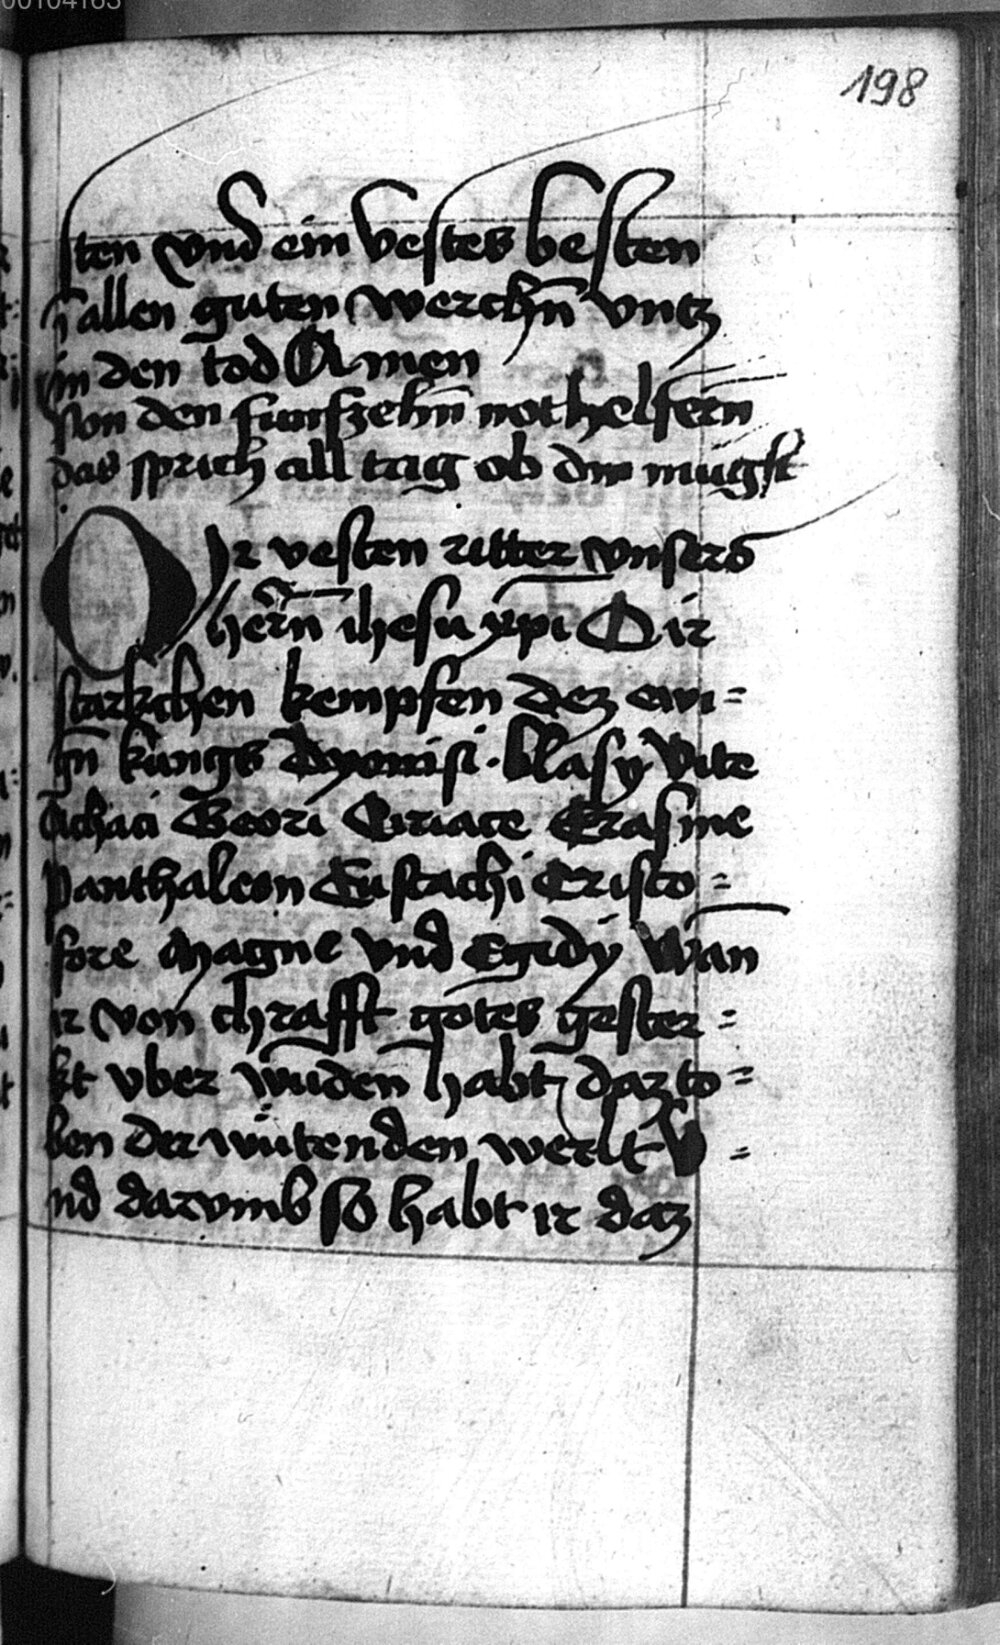 00104163
198
sten vnd ein vestes besten
in allen guten werchñ vntz
in den tod Amen
Von den funfzehñ nothelfern
das sprich all tag ob du mügst
O Ir vesten ritter vnsers
herñ ihesu xpi O ir
starkchen kempfen dez ewi=
gñ künigs Dyonisi · blasy Vite
Achaci Geori Ciriace Erasme
Panthaleon Eustachi Cristo=
fore Magne vnd Egidy Wan
ir von chrafft gotes gester=
kt vber wüden habt daz to=
ben der wütenden werlt V=
nd darvmb so habt ir daz